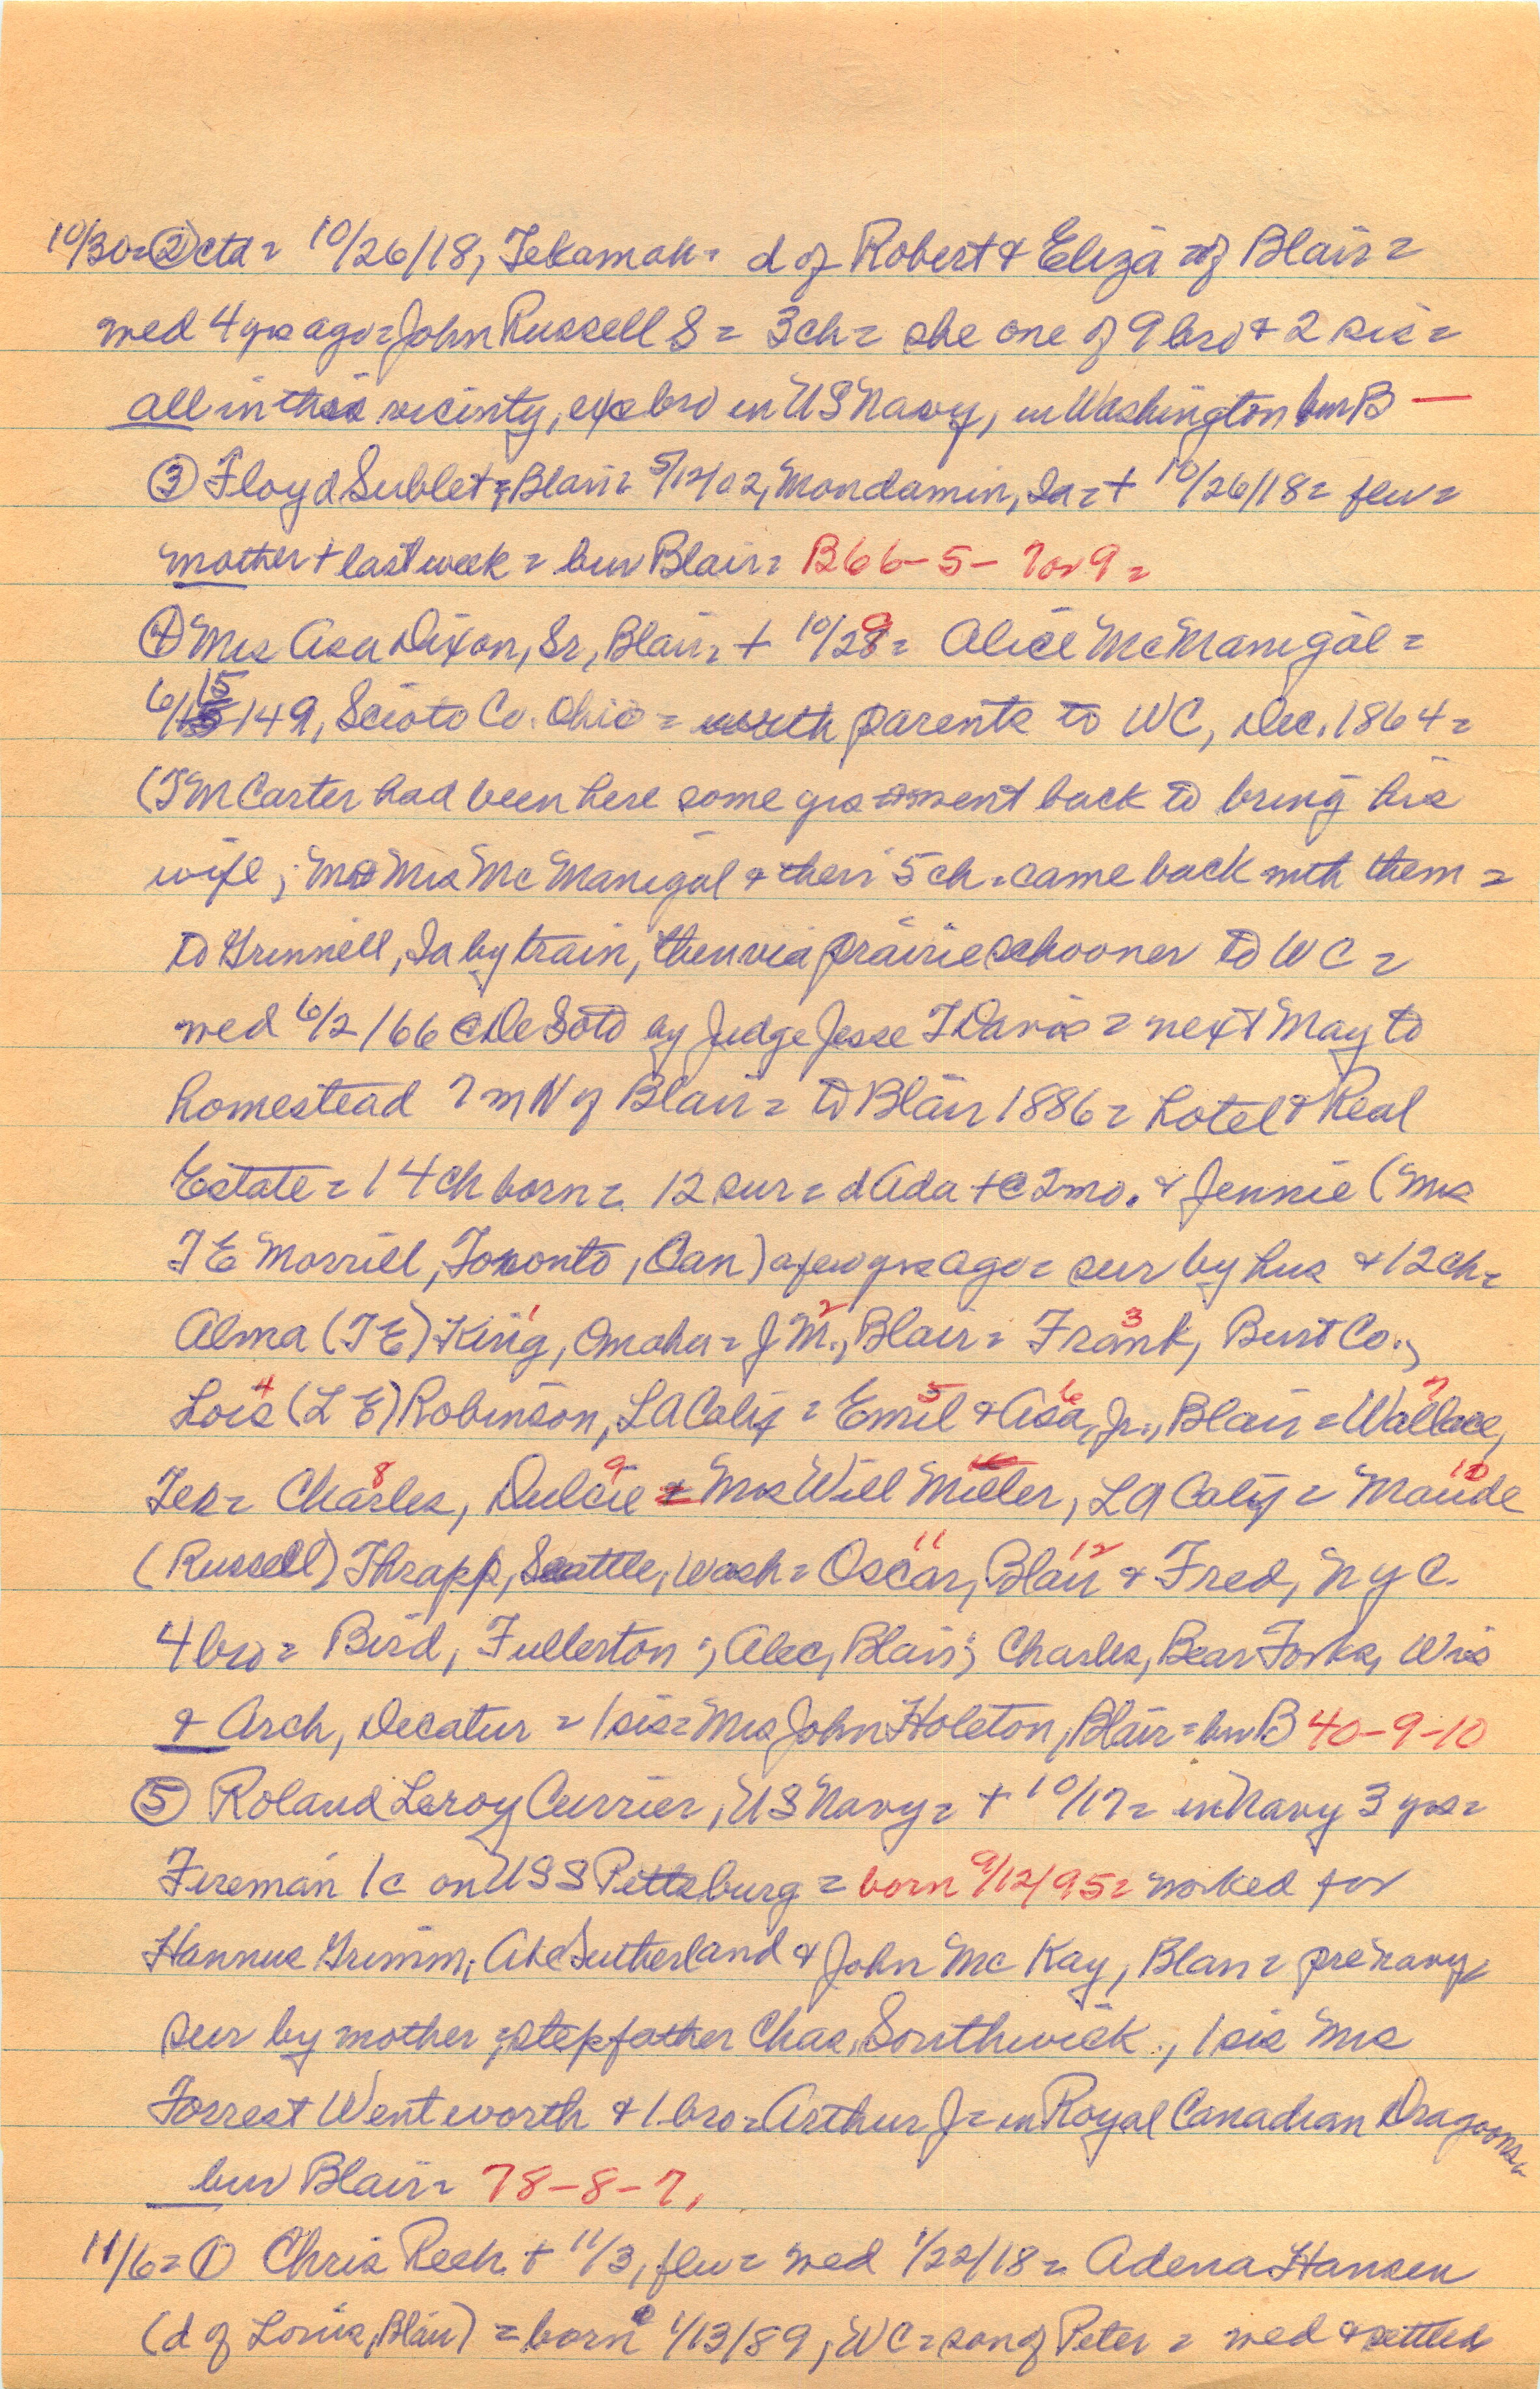 10/30=②ctd= 10/26/18, Tekamah= d of Robert & Eliza of Blair=
wed 4 yrs ago=John Russell S= 3ch= she one of 9 bro & 2 sis=
all in this vicinty, exc bro in US Navy, in Washington bur B —
③ Floyd Sublet, Blair= 5/12/02, Mondamin, Ia=+ 10/26/18= flu=
mother + last week = bur Blair= B66-5- 7or9=
④ Mrs Asa Dixon, Sr, Blair, + 10/29= Alice McManigal=
6/15/49, Scioto Co. Ohio = with parents to WC, Dec. 1864=
(TM Carter had been here some yrs went back to bring his
wife; M& Mrs McManigal & their 5 ch=came back with them=
to Grinnell, Ia by train, then via prairie schooner to WC=
wed 6/2/66 @DeSoto by Judge Jesse T Davis = next May to
homestead 7 m N of Blair= to Blair 1886= hotel & Real
Estate= 14 ch born= 12 sur= d Ada +@2mo. & Jennie (Mrs
TE Morrill, Toronto, Can) a few yrs ago= sur by hus & 12 ch=
Alma (TE) King,1 Omaha= J M.,2 Blair= Frank,3 Burt Co.,
Lois4 (L E) Robinson, LA Calif= Emil5 & Asa,6 Jr., Blair= Wallace,7
Tek= Charles,8 Dulcie9 = Mrs Will Miller, LA Calif= Maude10
(Russell) Thrapp, Seattle, Wash= Oscar,11 Blair12 & Fred, NYC.
4 bro= Bird, Fullerton; Alec, Blair; Charles, Bear Forks, Wis
& Arch, Decatur = 1 sis= Mrs John Holeton, Blair= bur B 40-9-10
⑤ Roland Leroy Currier, US Navy= + 10/17= in Navy 3 yrs=
Fireman 1c on USS Pittsburg = born 9/12/95= worked for
Hannus Grimm, Abe Sutherland & John McKay, Blair= prenavy=
sur by mother, stepfather Chas. Southwick, 1 sis Mrs
Forrest Wentworth & 1 bro=Arthur J= in Royal Canadian Dragoons=
bur Blair= 78-8-7,
11/6=① Chris Reeh + 11/3, flu= wed 1/22/18= Adena Hansen
(d of Louis, Blair) = born 1/13/89, WC= son of Peter = wed & settled